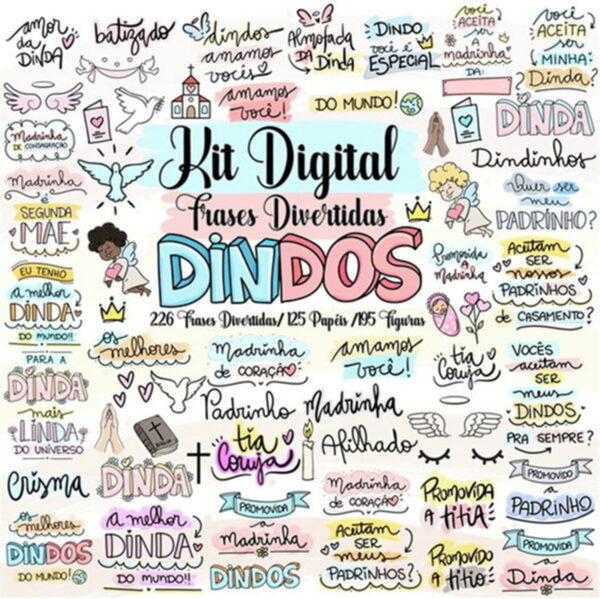 amor
da
DINDA
batizado
dindos
amamos
vocês
Almofada
DA Dinda
DINDO
você é
ESPECIAL
você
ACEITA
ser
a
madrinha
DA:
você
ACEITA
ser
MINHA:
Dinda?
amamos
você!
DO MUNDO!
DINDA
Madrinha
DE CONSAGRAÇÃO
Kit Digital
Frases Divertidas
DINDOS
226 Frases Divertidas/ 125 Papéis /195 Figuras
Dindinhos
Madrinha
é
SEGUNDA
MÃE
Quer ser
meu
PADRINHO?
EU TENHO
a melhor
DINDA
DO MUNDO!!
Promovida
a
Madrinha
Aceitam
SER
nossos
PADRINHOS
DE CASAMENTO?
PARA A
DINDA
mais
LINDA
DO UNIVERSO
os
melhores
Madrinha
DE CORAÇÃO
amamos
você!
tia
Coruja
VOCÊS
aceitam
SER
meus
DINDOS
PRA SEMPRE?
Padrinho
Madrinha
tia
Coruja
Afilhado
Crisma
DINDA
PROMOVIDA
a
Madrinha
Madrinha
DE CORAÇÃO
PROMOVIDA
A titia
PROMOVIDO
a
PADRINHO
os
melhores
DINDOS
DO MUNDO!
a melhor
DINDA
DO MUNDO!!
DINDOS
Aceitam
SER
meus
PADRINHOS?
PROMOVIDO
A titio
PROMOVIDA
a
Dinda